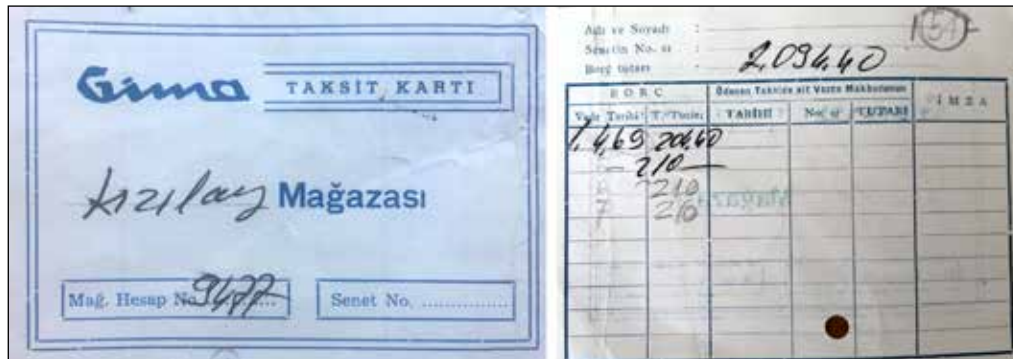 Gima TAKSİT KARTI
Kızılay Mağazası
Mağ. Hesap No. 9477
Senet No. ................
Adı ve Soyadı :
Senetin No. sı :
Borç tutarı : 2.094.40
BORÇ Ödenen Takside ait Vezne Makbuzunun İMZA
Vade Tarihi T. Tutarı TARİHİ No. sı TUTARI
1.4.69 204.40
210
210
7 210